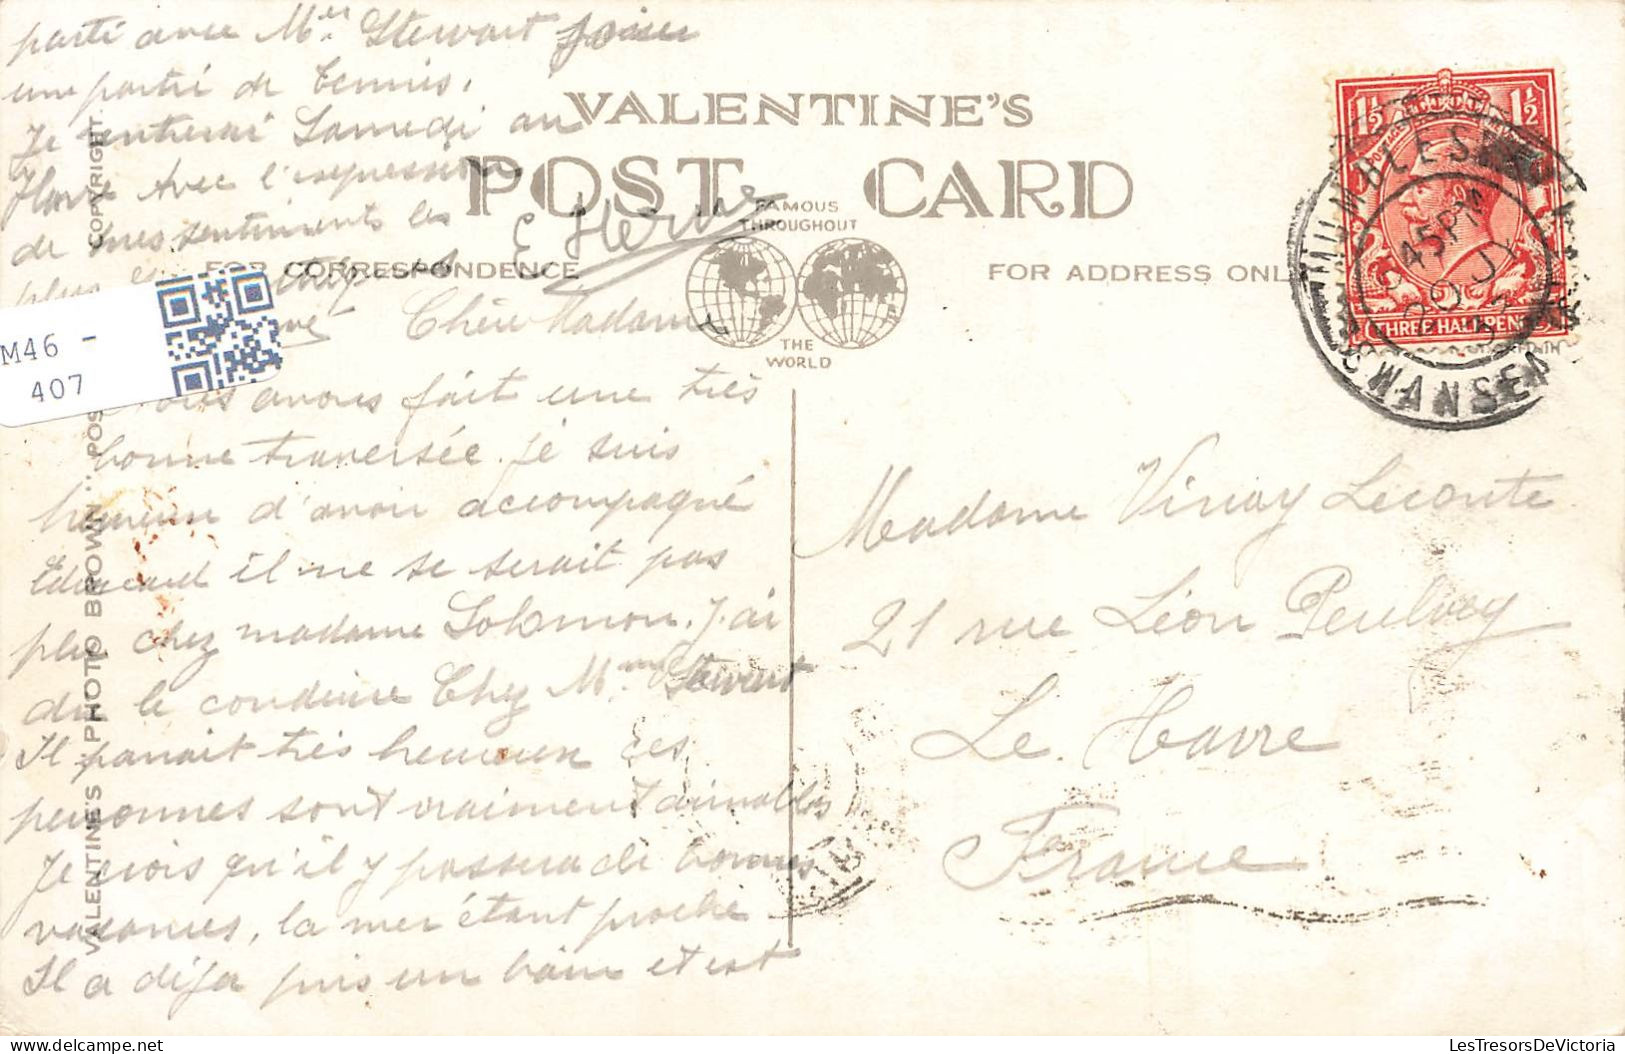 parti avec Mr Stewart jouer
une partie de tennis.
Je rentrerai Samedi au
Havre Avec l'expression
de mes sentiments les
plus
E Herve
VALENTINE'S
POST CARD
FAMOUS
THROUGHOUT
THE
WORLD
FOR CORRESPONDENCE
FOR ADDRESS ONL
M46 -
407
Chère Madame
Nous avons fait une très
bonne traversée. je suis
heureux d'avoir accompagné
Edouard il ne se serait pas
plu chez madame Solomon. J'ai
du le conduire Chez Mme Stewart
Il parait très heureux Ces
personnes sont vraiment aimables
Je crois qu'il y passera de bonnes
vacances, la mer étant proche
Il a déja pris un bain et est
VALENTINE'S PHOTO BROWN POS COPYRIGHT
1½ 1½
POSTAGE
THREE HALFPENCE
MUMBLES
45PM
JY
SWANSEA
Madame Vinay Leconte
21 rue Léon Peulvey
Le Havre
France
LesTresorsDeVictoria.com